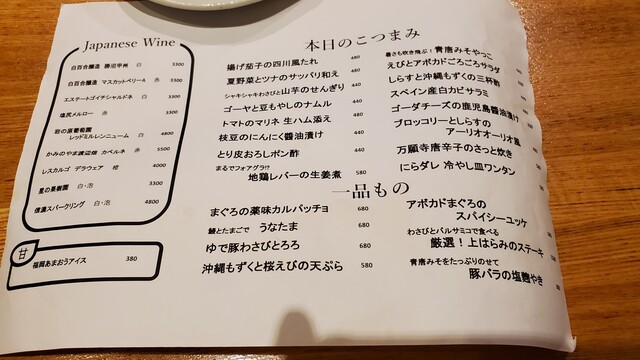 Japanese Wine
白百合醸造 勝沼甲州 白 3300
白百合醸造 マスカットベリーA 赤 3300
エステートゴイチシャルドネ 白 3300
塩尻メルロー 赤 3300
岩の原葡萄園
レッドミルレンニューム 白 4800
かみのやま渡辺畑 カベルネ 赤 5500
レスカルゴ デラウェア 橙 4000
星の果樹園 白・泡 3300
信濃スパークリング 白・泡 4800
甘
福岡あまおうアイス 380
本日のこつまみ
揚げ茄子の四川風たれ 480
夏野菜とツナのサッパリ和え 480
シャキシャキわさびと山芋のせんぎり 440
ゴーヤと豆もやしのナムル 440
トマトのマリネ 生ハム添え 480
枝豆のにんにく醬油漬け 440
とり皮おろしポン酢 440
まるでフォアグラ!?
地鶏レバーの生姜煮 580
暑さも吹き飛ぶ!青唐みそやっこ
えびとアボカドごろごろサラダ
しらすと沖縄もずくの三杯酢
スペイン産白カビサラミ
ゴーダチーズの鹿児島醬油漬け
ブロッコリーとしらすの
アーリオオーリオ風
万願寺唐辛子のさっと炊き
にらダレ 冷やし皿ワンタン
一品もの
まぐろの薬味カルパッチョ 680
鰻とたまごで うなたま 680
ゆで豚わさびとろろ 680
沖縄もずくと桜えびの天ぷら 580
アボカドまぐろの
スパイシーユッケ
わさびとバルサミコで食べる
厳選!上はらみのステーキ
青唐みそをたっぷりのせて
豚バラの塩麴やき